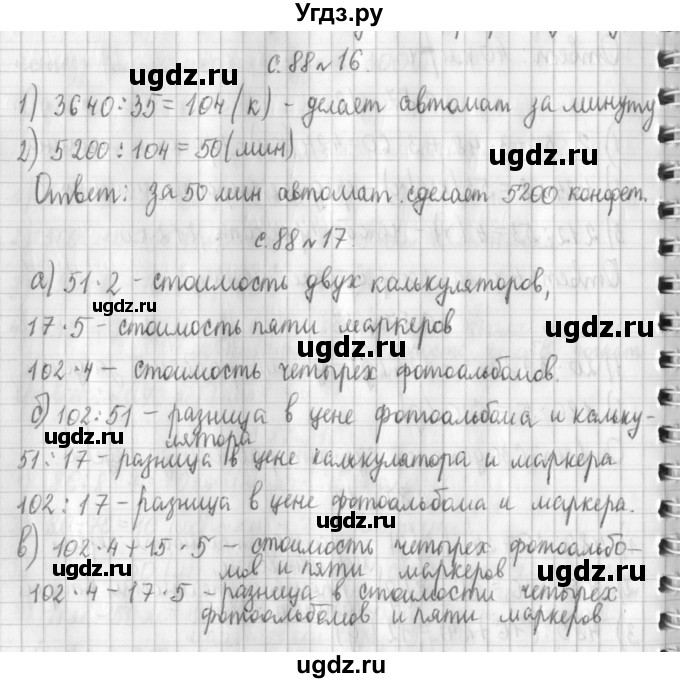 Угдз.ру
с.88 № 16.
ugdz.ru
1) 3640:35=104(к) - делает автомат за минуту
2) 5200:104=50(мин)
ugdz.ru
Ответ: за 50 мин автомат сделает 5200 конфет.
с.88 № 17.
ugdz.ru
а) 51·2 - стоимость двух калькуляторов,
ugdz.ru
17·5 - стоимость пяти маркеров
ugdz.ru
102·4 - стоимость четырех фотоальбомов.
б) 102:51 - разница в цене фотоальбома и кальку-
лятора
ugdz.ru
51:17 - разница в цене калькулятора и маркера
102:17 - разница в цене фотоальбома и маркера.
ugdz.ru
в) 102·4+15·5 - стоимость четырех фотоальбо-
мов и пяти маркеров
ugdz.ru
102·4-17·5 - разница в стоимости четырех
фотоальбомов и пяти маркеров
ugdz.ru
ugdz.ru